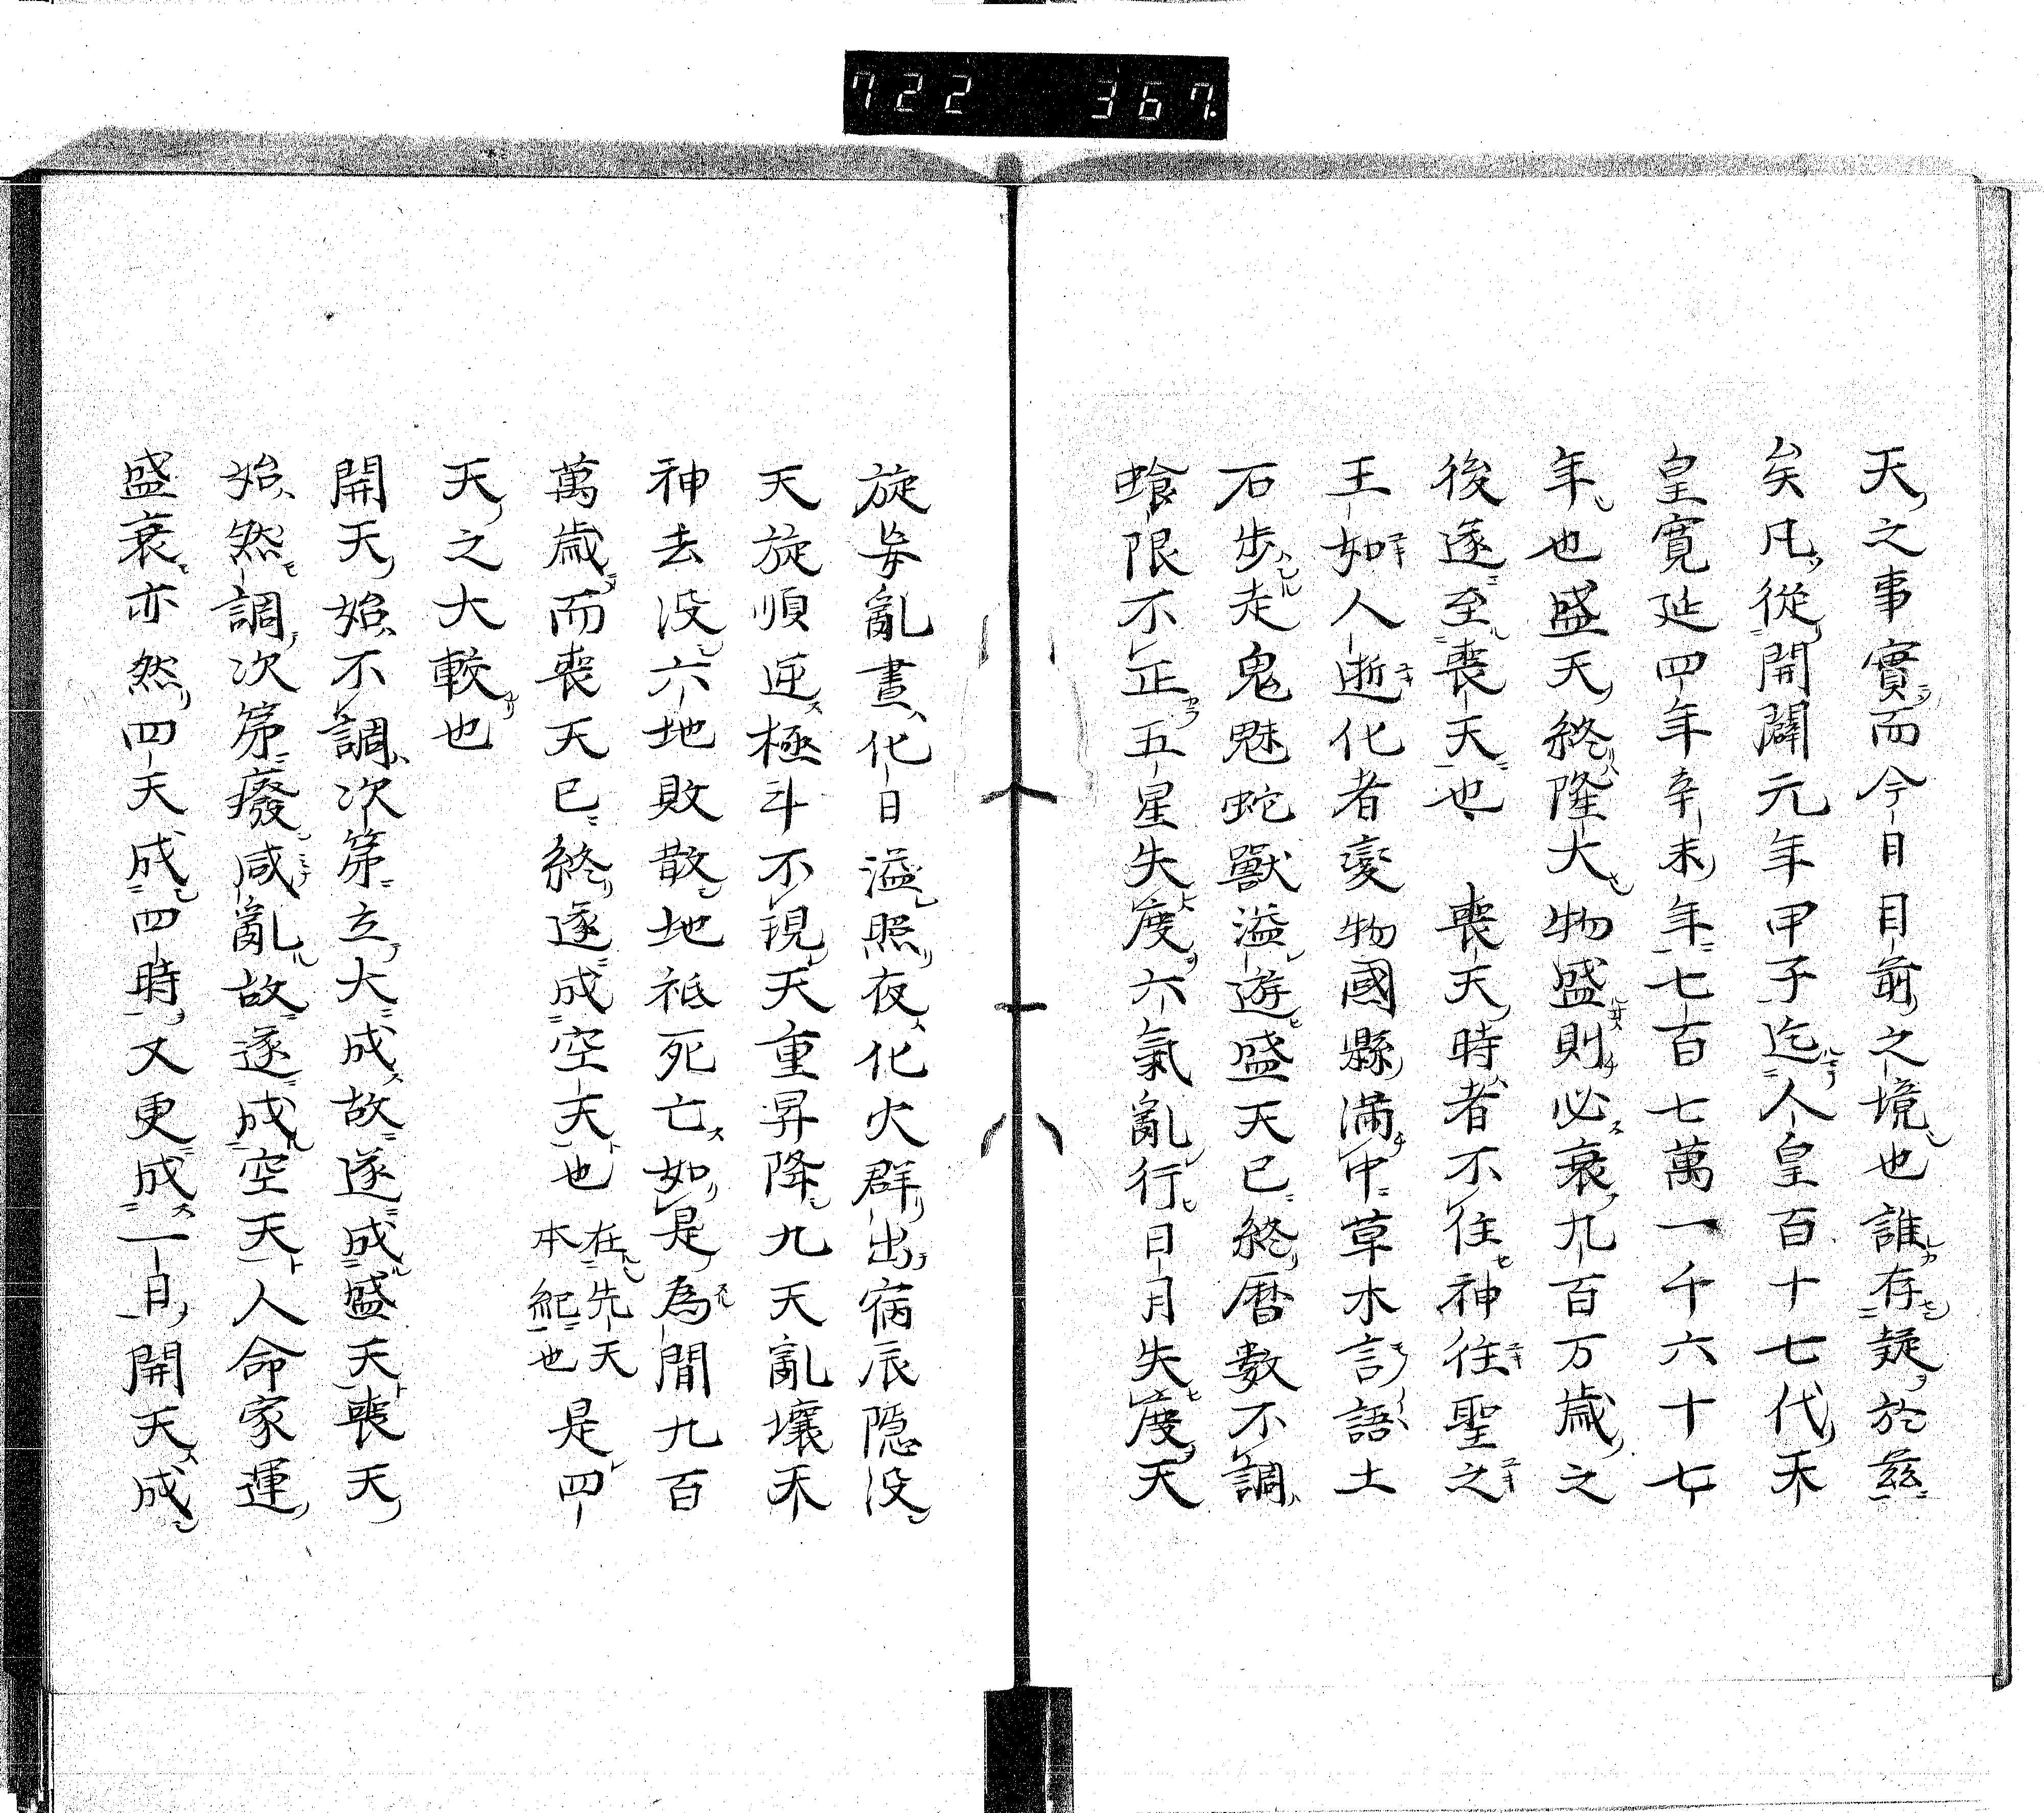 722 367.
天之事實而今日目前之境也誰存疑於茲
矣凡從開闢元年甲子迄人皇百十七代天
皇寛延四年辛未年七百七萬一千六十七
年也盛天終隆大物盛則必衰九百万歳之
後遂至喪天也 喪天時者不往神往聖之
王如人逝化者変物國縣満中草木言語土
石歩走鬼魅蛇獣溢遊盛天已終暦数不調
蝕限不正五星失度六氣亂行日月失度天
旋歩亂晝化日溢照夜化火群出宿辰隠没
天旋順逆極斗不現天重昇降九天亂壞天
神去没六地敗散地祇死亡如是為間九百
萬歳而喪天已終遂成空天也 在先天
本紀也 是四
天之大較也
開天始不調次第立大成故遂成盛天喪天
始然調次第癈咸亂故遂成空天人命家運
盛衰亦然四天成四時又更成一日開天成